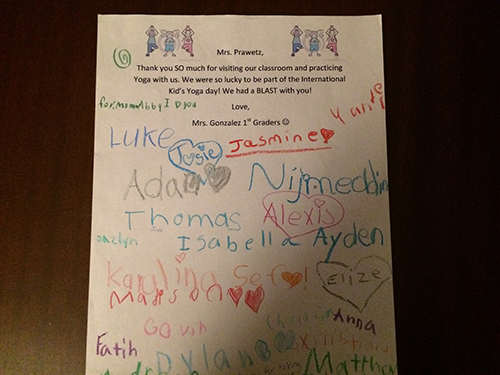 Mrs. Prawetz,
Thank you SO much for visiting our classroom and practicing
Yoga with us. We were so lucky to be part of the International
Kid's Yoga day! We had a BLAST with you!
Love,
Mrs. Gonzalez 1st Graders ☺
Abby I you
Luke
Josie
Jasmine
Adam
Nijmeddin
Thomas
Alexis
Isabella Ayden
Karolina Sef
Elize
Madison
Gavin
Anna
Fatih
Dylan
Matthew